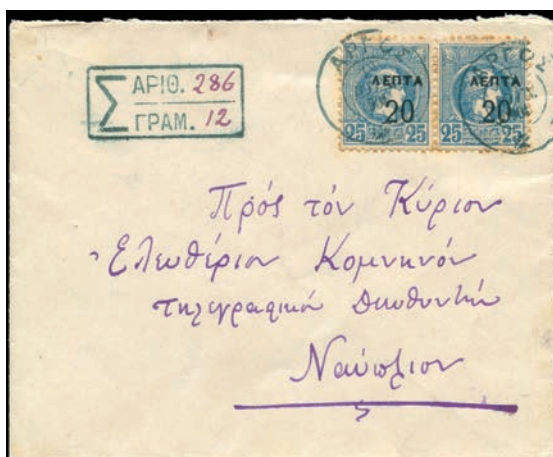 Σ ΑΡΙΘ. 286
ΓΡΑΜ. 12
ΑΡΓΟΣ
ΛΕΠΤΑ ΛΕΠΤΑ
20 20
25 25 25 25
Πρός τόν Κύριον
Ελευθέριον Κομνηνόν
τηλεγραφικόν διευθυντήν
Ναύπλιον